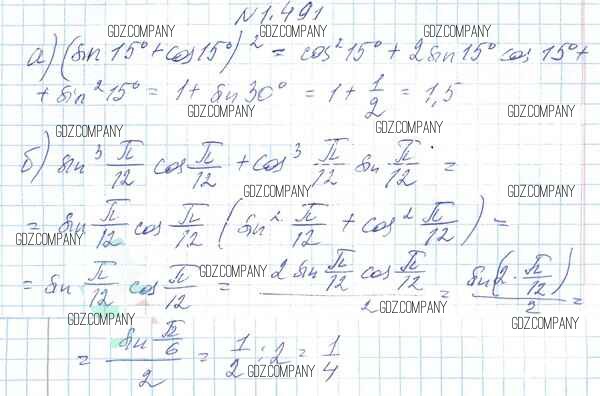 №1.491
GDZ.COMPANY GDZ.COMPANY GDZ.COMPANY
а) (sin 15° + cos 15°)² = cos² 15° + 2 sin 15° cos 15° +
+ sin² 15° = 1 + sin 30° = 1 + 1/2 = 1,5
GDZ.COMPANY GDZ.COMPANY GDZ.COMPANY
GDZ.COMPANY GDZ.COMPANY GDZ.COMPANY
б) sin³ π/12 cos π/12 + cos³ π/12 sin π/12 =
GDZ.COMPANY GDZ.COMPANY GDZ.COMPANY
= sin π/12 cos π/12 (sin² π/12 + cos² π/12) =
GDZ.COMPANY GDZ.COMPANY GDZ.COMPANY
= sin π/12 cos π/12 = (2 sin π/12 cos π/12)/2 = sin(2 · π/12)/2 =
GDZ.COMPANY GDZ.COMPANY GDZ.COMPANY
= (sin π/6)/2 = 1/2 : 2 = 1/4
GDZ.COMPANY